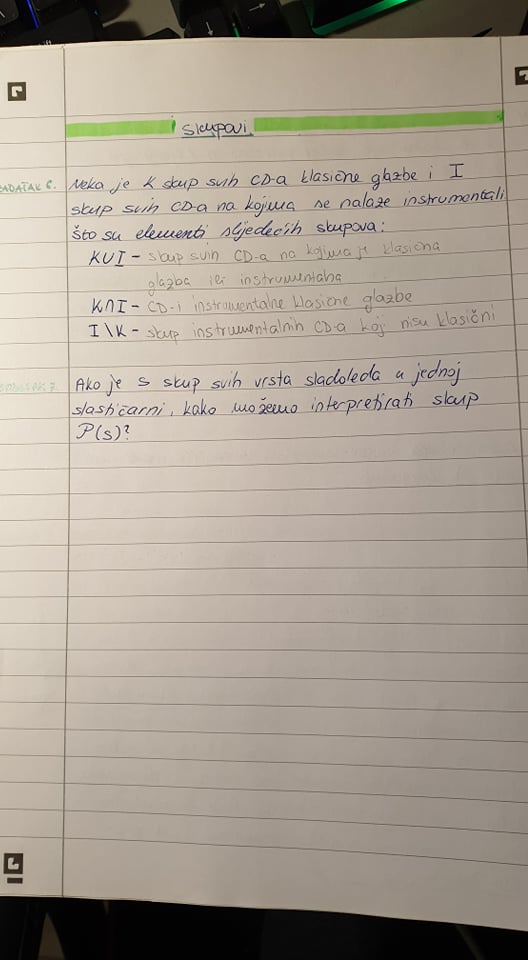 Skupovi
ZADATAK 6. Neka je K skup svih CD-a klasične glazbe i I
skup svih CD-a na kojima se nalaze instrumentali
što su elementi sljedećih skupova:
K∪I – skup svih CD-a na kojima je klasična
glazba ili instrumentalna
K∩I – CD-i instrumentalne klasične glazbe
I\K – skup instrumentalnih CD-a koj nisu klasični
7. Ako je S skup svih vrsta sladoleda u jednoj
slastičarni, kako možemo interpretirati skup
P(S)?